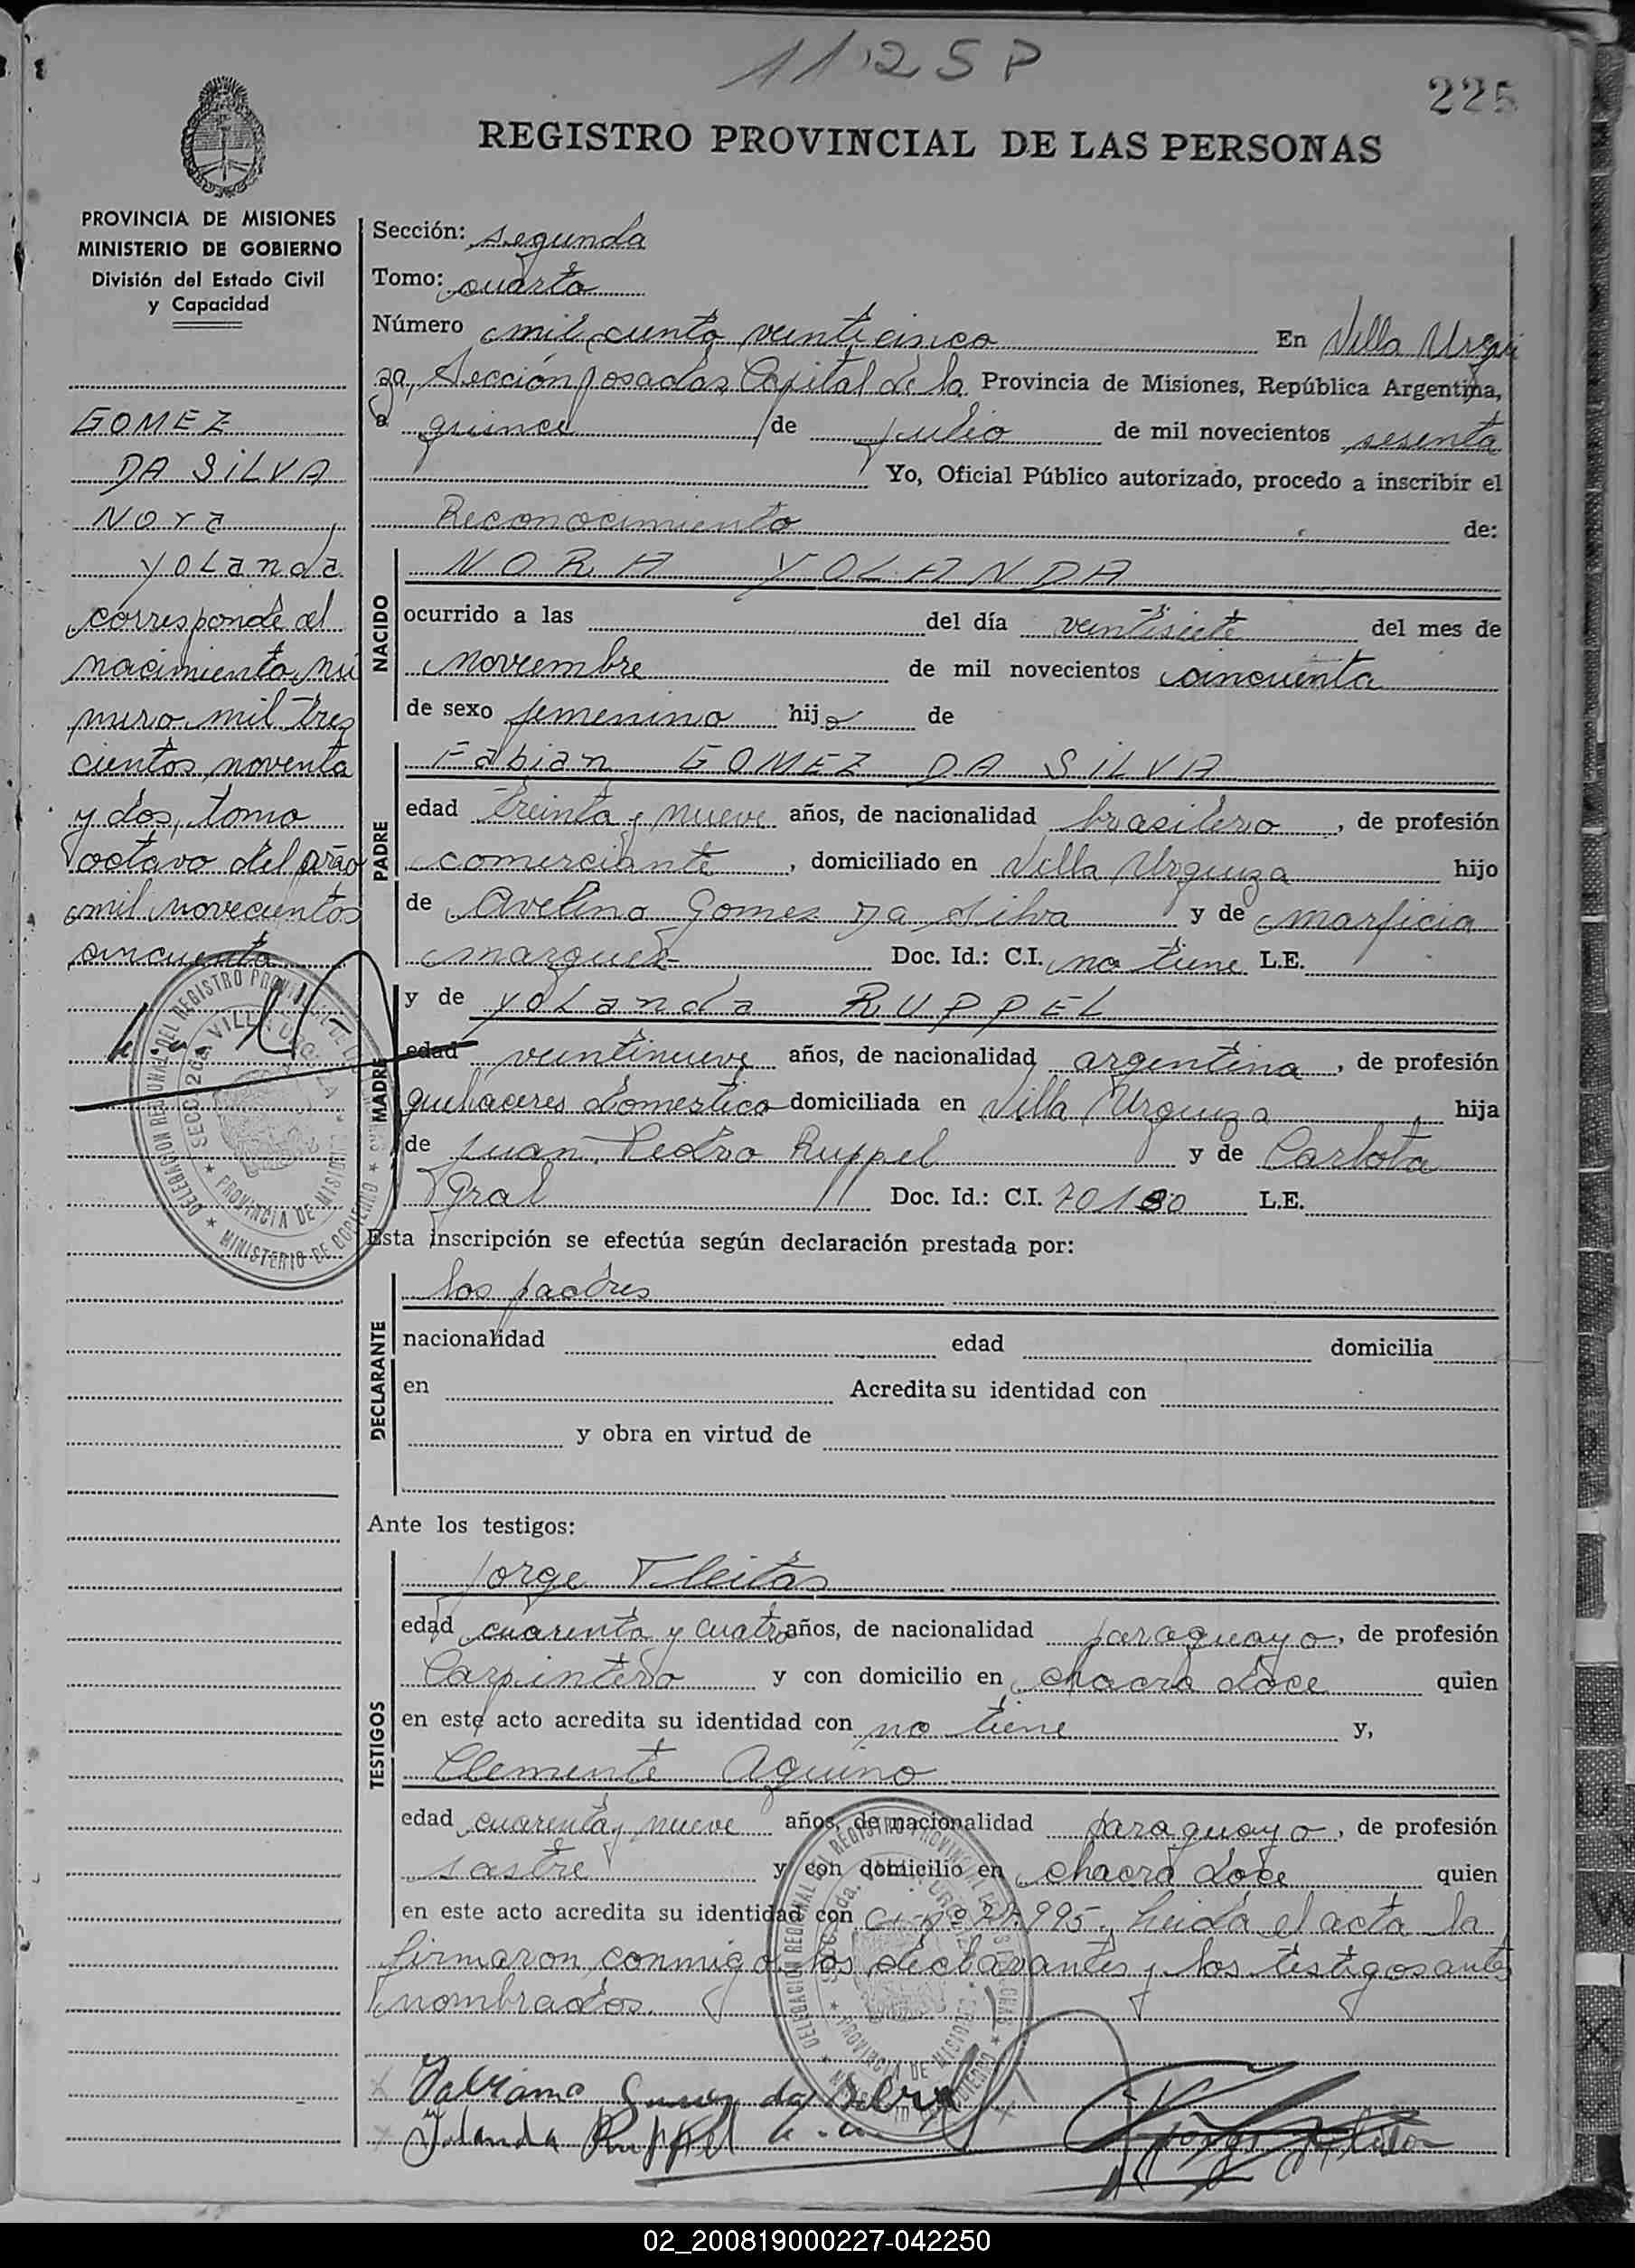 1125 P
225
REGISTRO PROVINCIAL DE LAS PERSONAS
PROVINCIA DE MISIONES
MINISTERIO DE GOBIERNO
División del Estado Civil
y Capacidad
GOMEZ
DA SILVA
Nora
Yolanda
corresponde al
nacimiento nú
mero mil tres
cientos noventa
y dos, tomo
octavo del año
mil novecientos
cincuenta
Sección: segunda
Tomo: cuarto
Número mil ciento veinticinco En Villa Urqui
za, Sección posadas Capital de la Provincia de Misiones, República Argentina,
a quince de julio de mil novecientos sesenta
Yo, Oficial Público autorizado, procedo a inscribir el
Reconocimiento de:
NACIDO
NORA YOLANDA
ocurrido a las del día veintisiete del mes de
noviembre de mil novecientos cincuenta
de sexo femenino hija de
PADRE
Fabian GOMEZ DA SILVA
edad treinta y nueve años, de nacionalidad brasilero, de profesión
comerciante, domiciliado en Villa Urquiza hijo
de Avelino Gomes Da Silva y de Marficia
Marquez Doc. Id.: C.I. no tiene L.E.
MADRE
y de Yolanda RUPPEL
edad veintinueve años, de nacionalidad argentina, de profesión
quehaceres domestico domiciliada en Villa Urquiza, hija
de Juan Pedro Ruppel y de Carlota
Gral Doc. Id.: C.I. 70180 L.E.
Esta inscripción se efectúa según declaración prestada por:
DECLARANTE
los padres
nacionalidad edad domicilia
en Acredita su identidad con
y obra en virtud de
Ante los testigos:
TESTIGOS
Jorge Fleitas
edad cuarenta y cuatro años, de nacionalidad paraguayo, de profesión
Carpintero y con domicilio en chacra doce quien
en este acto acredita su identidad con no tiene y,
Clemente Aquino
edad cuarenta y nueve años, de nacionalidad paraguayo, de profesión
sastre y con domicilio en chacra doce quien
en este acto acredita su identidad con Leida el acta la
firmaron conmigo los declarantes y los testigos antes
nombrados.
da Silva
Yolanda Ruppel
Jorge Fleitas
02_200819000227-042250